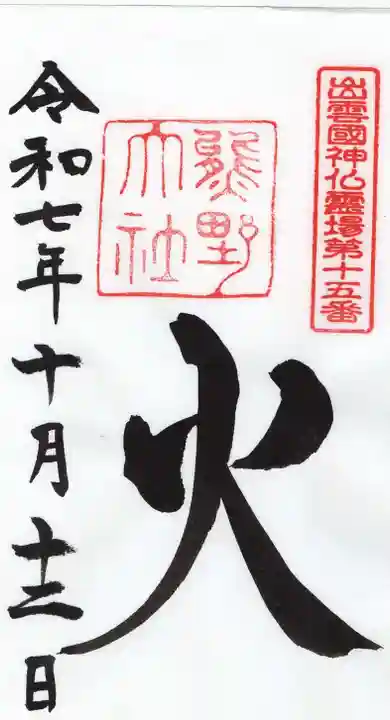 出雲國神仏霊場第十五番
熊野
大社
火
令和七年十月十三日